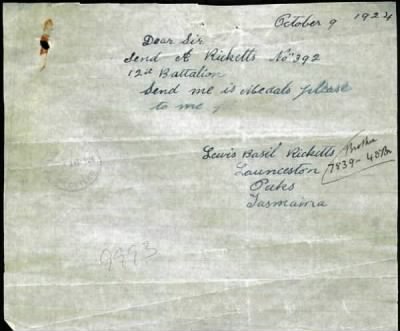 October 9 1924
Dear Sir
Send A Ricketts No 392
12st Battalion
Send me is Medals please
to me
Lewis Basil Ricketts
Launceston
Paks
Tasmania
Brother
7839 - 48Bn
9993